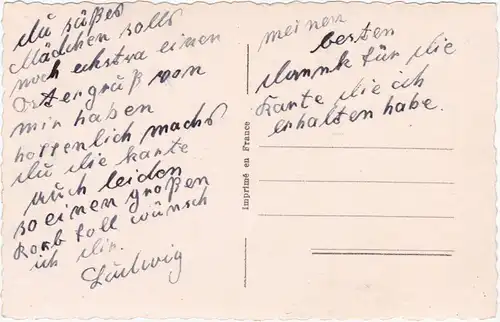 du süßes
Mädchen solls
noch echstra einen
Ostergruß von
mir haben
hoffenlich machs
du die Karte
auch leiden
so einen großen
Korb foll wünsch
ich dir.
Ludwig
Imprimé en France
meinen
besten
dannk für die
Karte die ich
erhalten habe.